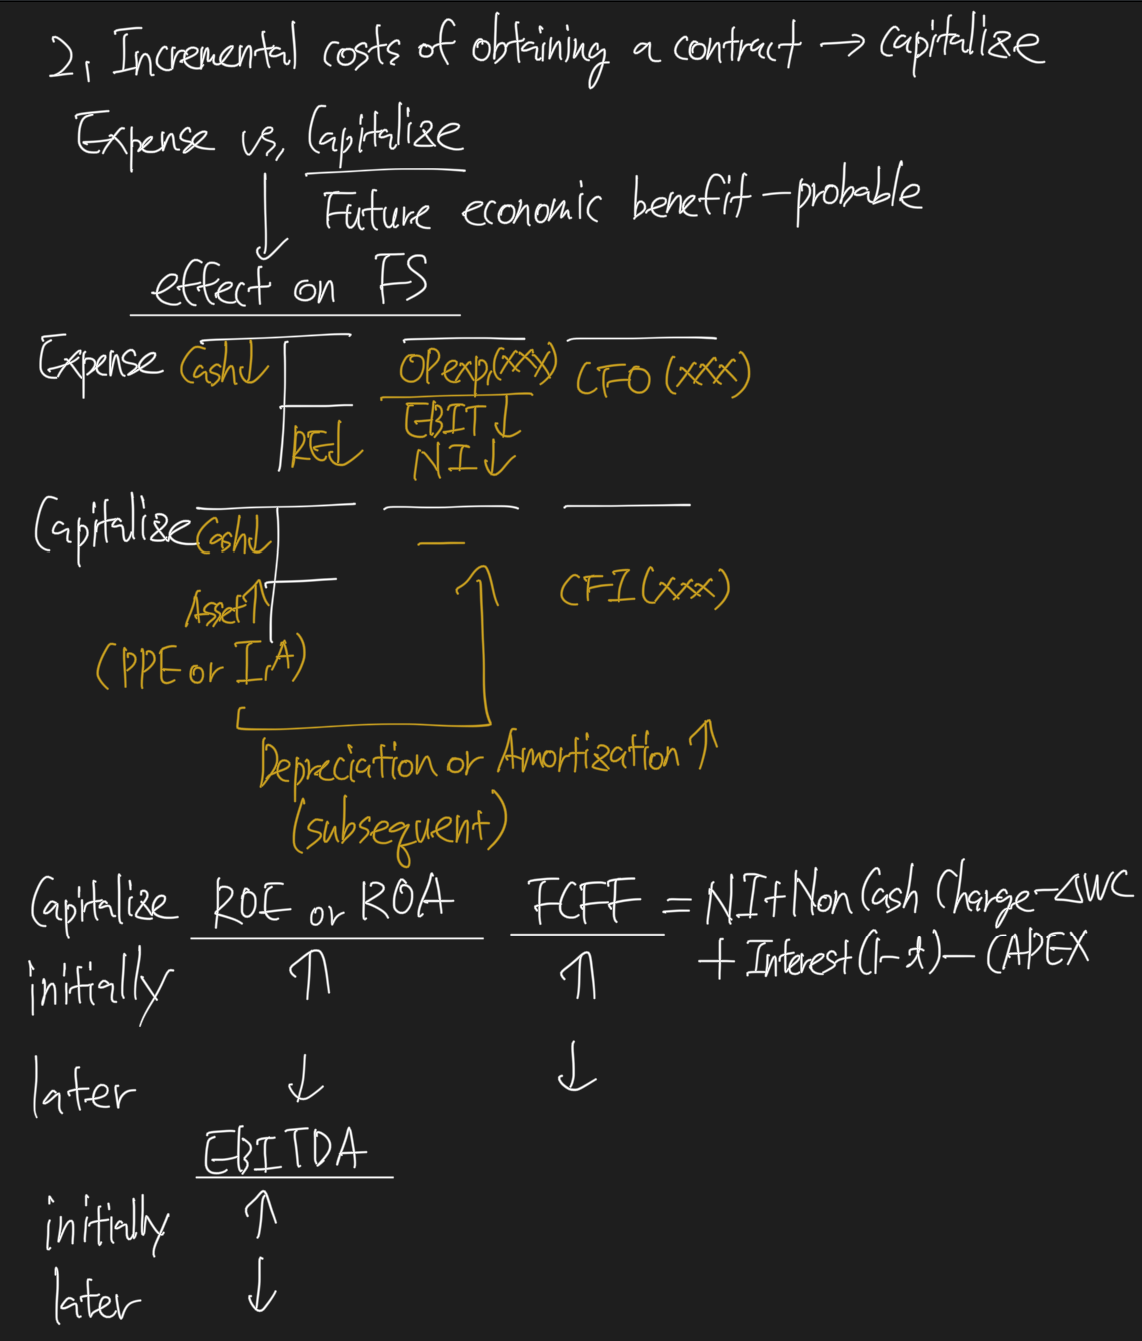 2, Incremental costs of obtaining a contract → capitalize
Expense vs, Capitalize
Future economic benefit - probable
↓
effect on FS
Expense Cash↓ OPexp,(xxx) CFO (xxx)
EBIT↓
RE↓ NI↓
Capitalize Cash↓ —
Asset↑ CFI (xxx)
(PPE or I,A)
Depreciation or Amortization ↑
(subsequent)
Capitalize ROE or ROA FCFF = NI + Non Cash Charge - △WC
initially ↑ ↑ + Interest (1-t) - CAPEX
later ↓ ↓
EBITDA
initially ↑
later ↓